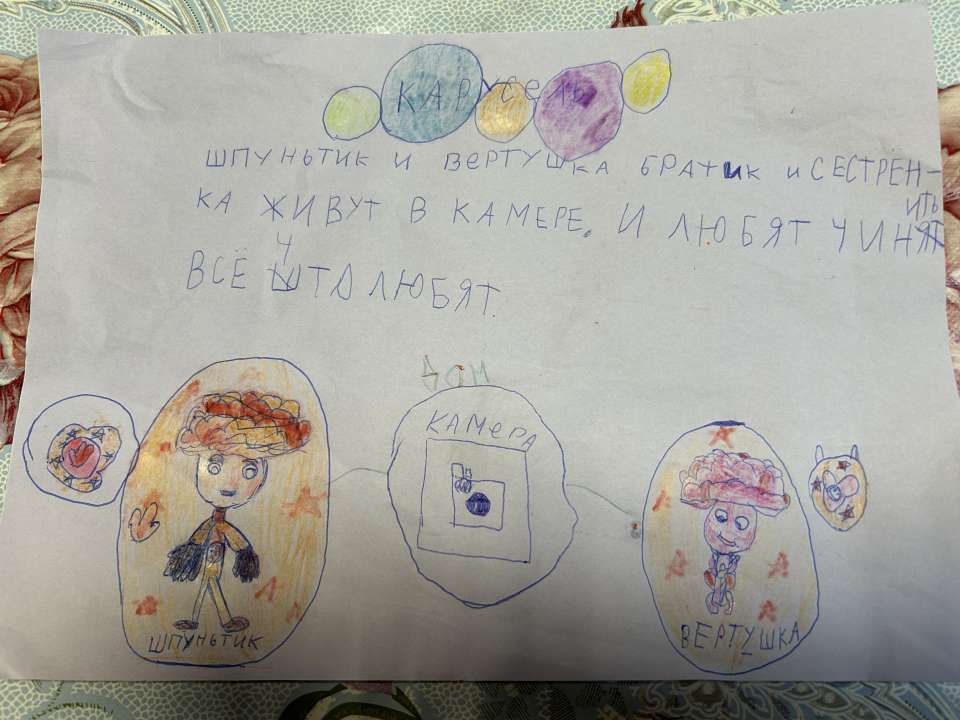 КАРУСЕЛЬ
ШПУНЬТИК И ВЕРТУШКА БРАТИК И СЕСТРЕН-
КА ЖИВУТ В КАМЕРЕ. И ЛЮБЯТ ЧИНИТЬ
ВСЁ ЧТО ЛЮБЯТ.
ДОМ
КАМЕРА
ШПУНЬТИК
ВЕРТУШКА